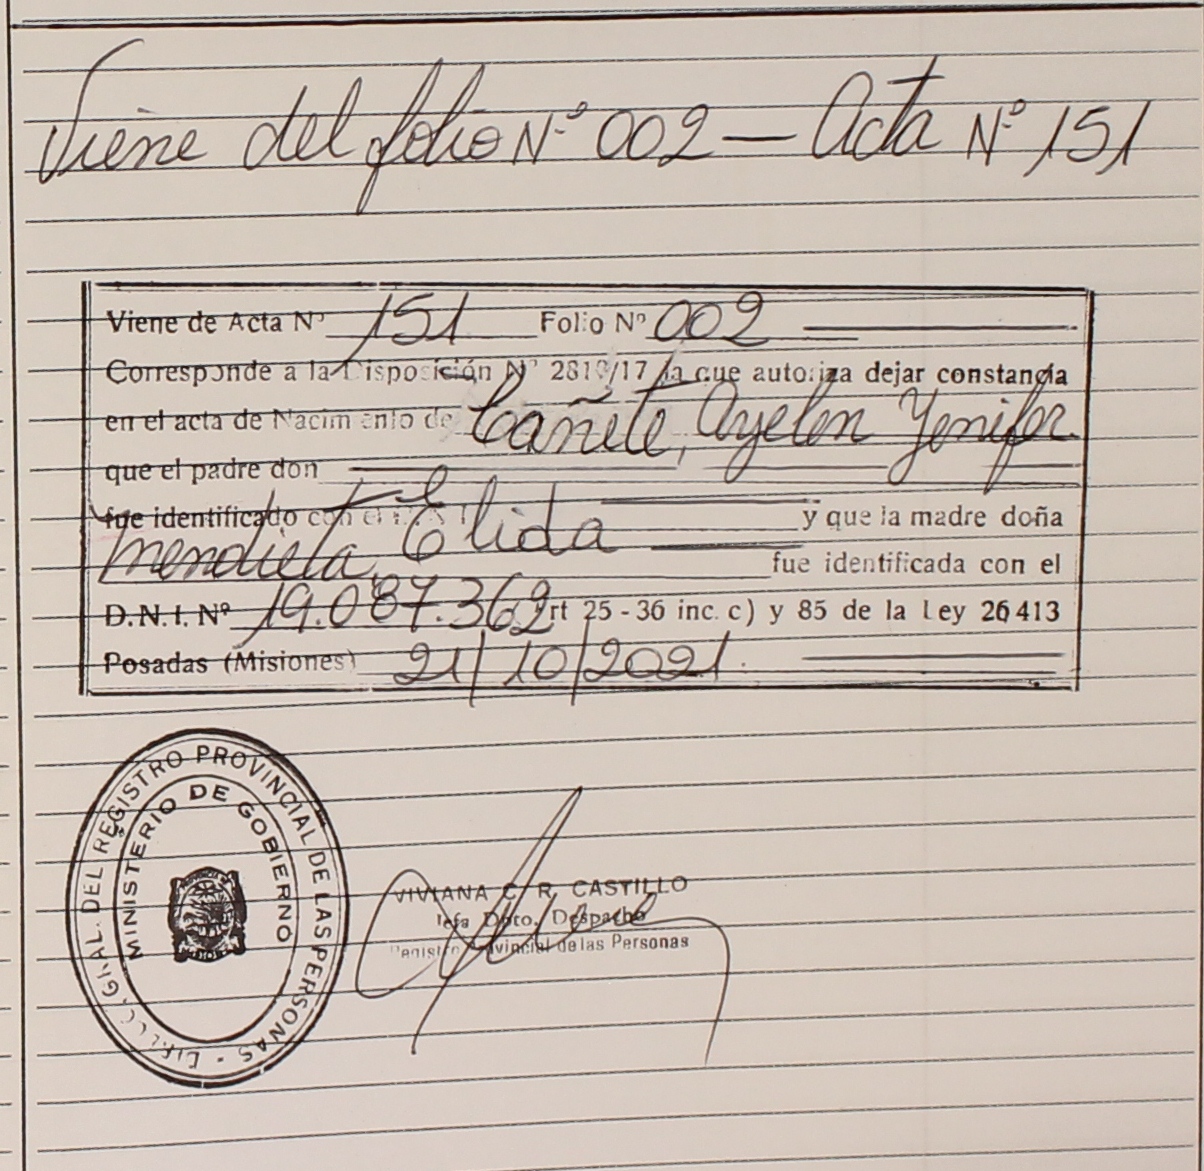 Viene del folio N° 002 — Acta N° 151
Viene de Acta N° 151 Folio N° 002
Corresponde a la Disposición N° 2810/17 la que autoriza dejar constancia
en el acta de Nacimiento de Cañete, Ayelen Yenifer
que el padre don
fue identificado con el D.N.I. y que la madre doña
Mendieta, Elida fue identificada con el
D.N.I. N° 19.087.362 rt 25 - 36 inc. c) y 85 de la Ley 26413
Posadas (Misiones) 21/10/2021.
GRAL. DEL REGISTRO PROVINCIAL DE LAS PERSONAS -
MINISTERIO DE GOBIERNO
VIVIANA C. R. CASTILLO
Jefa Dpto. Despacho
Registro Provincial de las Personas